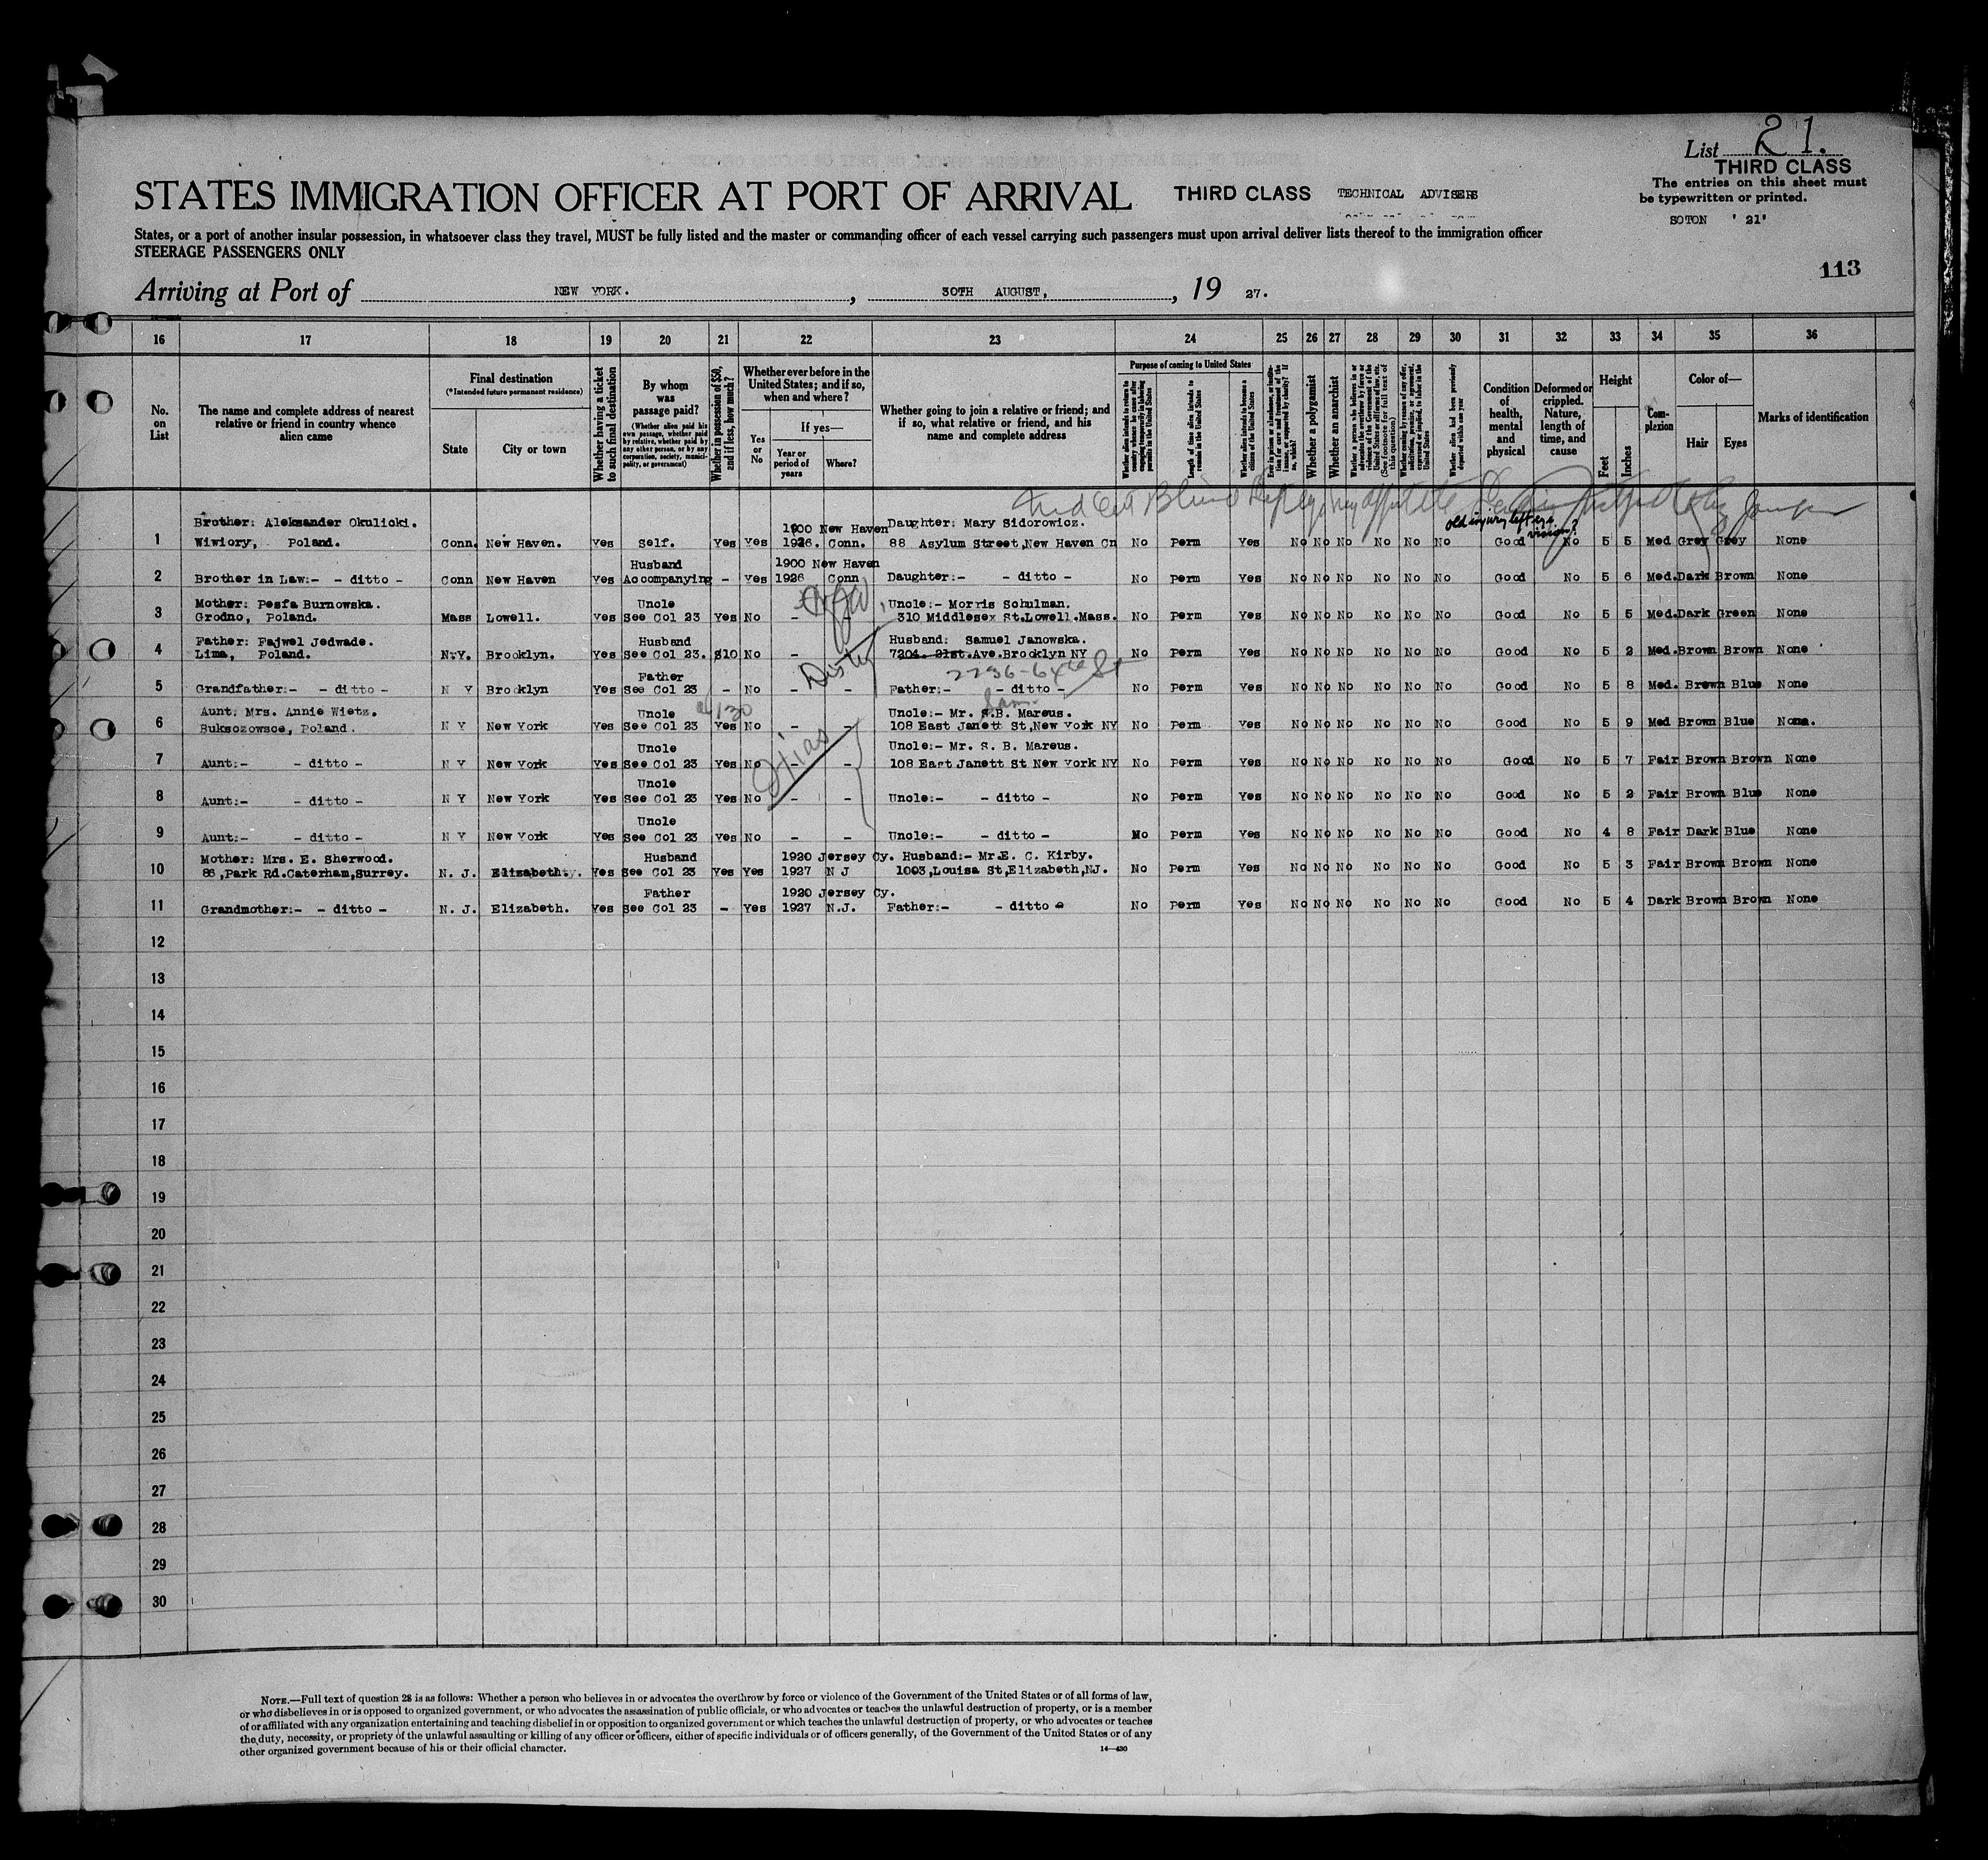 List 21.
THIRD CLASS
The entries on this sheet must
be typewritten or printed.
SOTON ' 21'
113
STATES IMMIGRATION OFFICER AT PORT OF ARRIVAL THIRD CLASS TECHNICAL ADVISERS
States, or a port of another insular possession, in whatsoever class they travel, MUST be fully listed and the master or commanding officer of each vessel carrying such passengers must upon arrival deliver lists thereof to the immigration officer
STEERAGE PASSENGERS ONLY
Arriving at Port of NEW YORK. , 30TH AUGUST, , 19 27.
16 17 18 19 20 21 22 23 24 25 26 27 28 29 30 31 32 33 34 35 36
No. on List
The name and complete address of nearest relative or friend in country whence alien came
Final destination
(*Intended future permanent residence)
State
City or town
Whether having a ticket to such final destination
By whom was passage paid?
(Whether alien paid his own passage, whether paid by relative, whether paid by any other person, or by any corporation, society, municipality, or government)
Whether in possession of $50, and if less, how much?
Whether ever before in the United States; and if so, when and where?
Yes or No
If yes—
Year or period of years
Where?
Whether going to join a relative or friend; and if so, what relative or friend, and his name and complete address
Purpose of coming to United States
Whether alien intends to return to country whence he came after engaging temporarily in laboring pursuits in the United States
Length of time alien intends to remain in the United States
Whether alien intends to become a citizen of the United States
Ever in prison or almshouse, or institution for care and treatment of the insane, or supported by charity? If so, which?
Whether a polygamist
Whether an anarchist
Whether a person who believes in or advocates the overthrow by force or violence of the Government of the United States or all forms of law, etc. (See footnote for full text of this question)
Whether coming by reason of any offer, solicitation, promise, or agreement, expressed or implied, to labor in the United States
Whether alien had been previously deported within one year
Condition of health, mental and physical
Deformed or crippled. Nature, length of time, and cause
Height
Feet
Inches
Complexion
Color of—
Hair
Eyes
Marks of identification
old injury left eye vision?
Brother: Aleksander Okulicki. 1900 New Haven Daughter: Mary Sidorowicz.
1 Wiwiory, Poland. Conn. New Haven. Yes Self. Yes Yes 1926. Conn. 88 Asylum Street,New Haven Cn No Perm Yes No No No No No No Good No 5 5 Med Grey Grey None
Husband 1900 New Haven
2 Brother in Law:- - ditto - Conn New Haven Yes Accompanying - Yes 1926 Conn Daughter:- - ditto - No Perm Yes No No No No No No Good No 5 6 Med. Dark Brown None
Mother: Pesfa Burnowska. Uncle Uncle:- Morris Schulman.
3 Grodno, Poland. Mass Lowell. Yes See Col 23 Yes No - 310 Middlesex St.Lowell.Mass. No Perm Yes No No No No No No Good No 5 5 Med. Dark Green None
Father: Fajwel Jedwade. Husband Husband: Samuel Janowska.
4 Lima, Poland. N.Y. Brooklyn. Yes See Col 23. $10 No - 7204. 21st.Ave.Brooklyn NY No Perm Yes No No No No No No Good No 5 2 Med. Brown Brown None
Father 2236-64th St
5 Grandfather:- - ditto - N Y Brooklyn Yes See Col 23 - No - - Father:- - ditto - No Perm Yes No No No No No No Good No 5 8 Med. Brown Blue None
Aunt: Mrs. Annie Wietz. Uncle Uncle:- Mr. S.B. Mareus. Sam
6 Suksozowsce, Poland. N Y New York Yes See Col 23 Yes No - - 108 East Janett St,New York NY No Perm Yes No No No No No No Good No 5 9 Med Brown Blue None.
Uncle Uncle:- Mr. S. B. Mareus.
7 Aunt:- - ditto - N Y New York Yes See Col 23 Yes No - - 108 East Janett St New York NY No Perm Yes No No No No No No Good No 5 7 Fair Brown Brown None
Hias
Uncle
8 Aunt:- - ditto - N Y New York Yes See Col 23 Yes No - - Uncle:- - ditto - No Perm Yes No No No No No No Good No 5 2 Fair Brown Blue None
Uncle
9 Aunt:- - ditto - N Y New York Yes See Col 23 Yes No - - Uncle:- - ditto - No Perm Yes No No No No No No Good No 4 8 Fair Dark Blue None
Mother: Mrs. E. Sherwood. Husband 1920 Jersey Cy. Husband:- Mr.E. C. Kirby.
10 86,Park Rd.Caterham,Surrey. N. J. Elizabeth Yes See Col 23 Yes Yes 1927 N J 1093,Louisa St,Elizabeth,NJ. No Perm Yes No No No No No No Good No 5 3 Fair Brown Brown None
Father 1920 Jersey Cy.
11 Grandmother:- - ditto - N. J. Elizabeth. Yes See Col 23 - Yes 1927 N.J. Father:- - ditto - No Perm Yes No No No No No No Good No 5 4 Dark Brown Brown None
12
13
14
15
16
17
18
19
20
21
22
23
24
25
26
27
28
29
30
NOTE.—Full text of question 28 is as follows: Whether a person who believes in or advocates the overthrow by force or violence of the Government of the United States or of all forms of law,
or who disbelieves in or is opposed to organized government, or who advocates the assassination of public officials, or who advocates or teaches the unlawful destruction of property, or is a member
of or affiliated with any organization entertaining and teaching disbelief in or opposition to organized government or which teaches the unlawful destruction of property, or who advocates or teaches
the duty, necessity, or propriety of the unlawful assaulting or killing of any officer or officers, either of specific individuals or of officers generally, of the Government of the United States or of any
other organized government because of his or their official character.
14—430